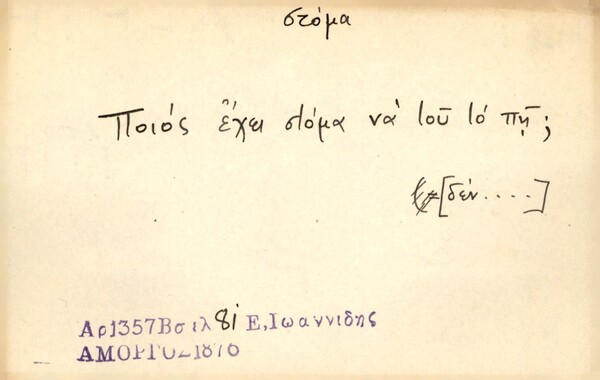 στόμα
Ποιός ἔχει στόμα νὰ τοῦ τό πῇ;
[δέν....]
Αρ1357Βσιλ 81 Ε,Ιωαννιδης
ΑΜΟΡΓΟΣ1876